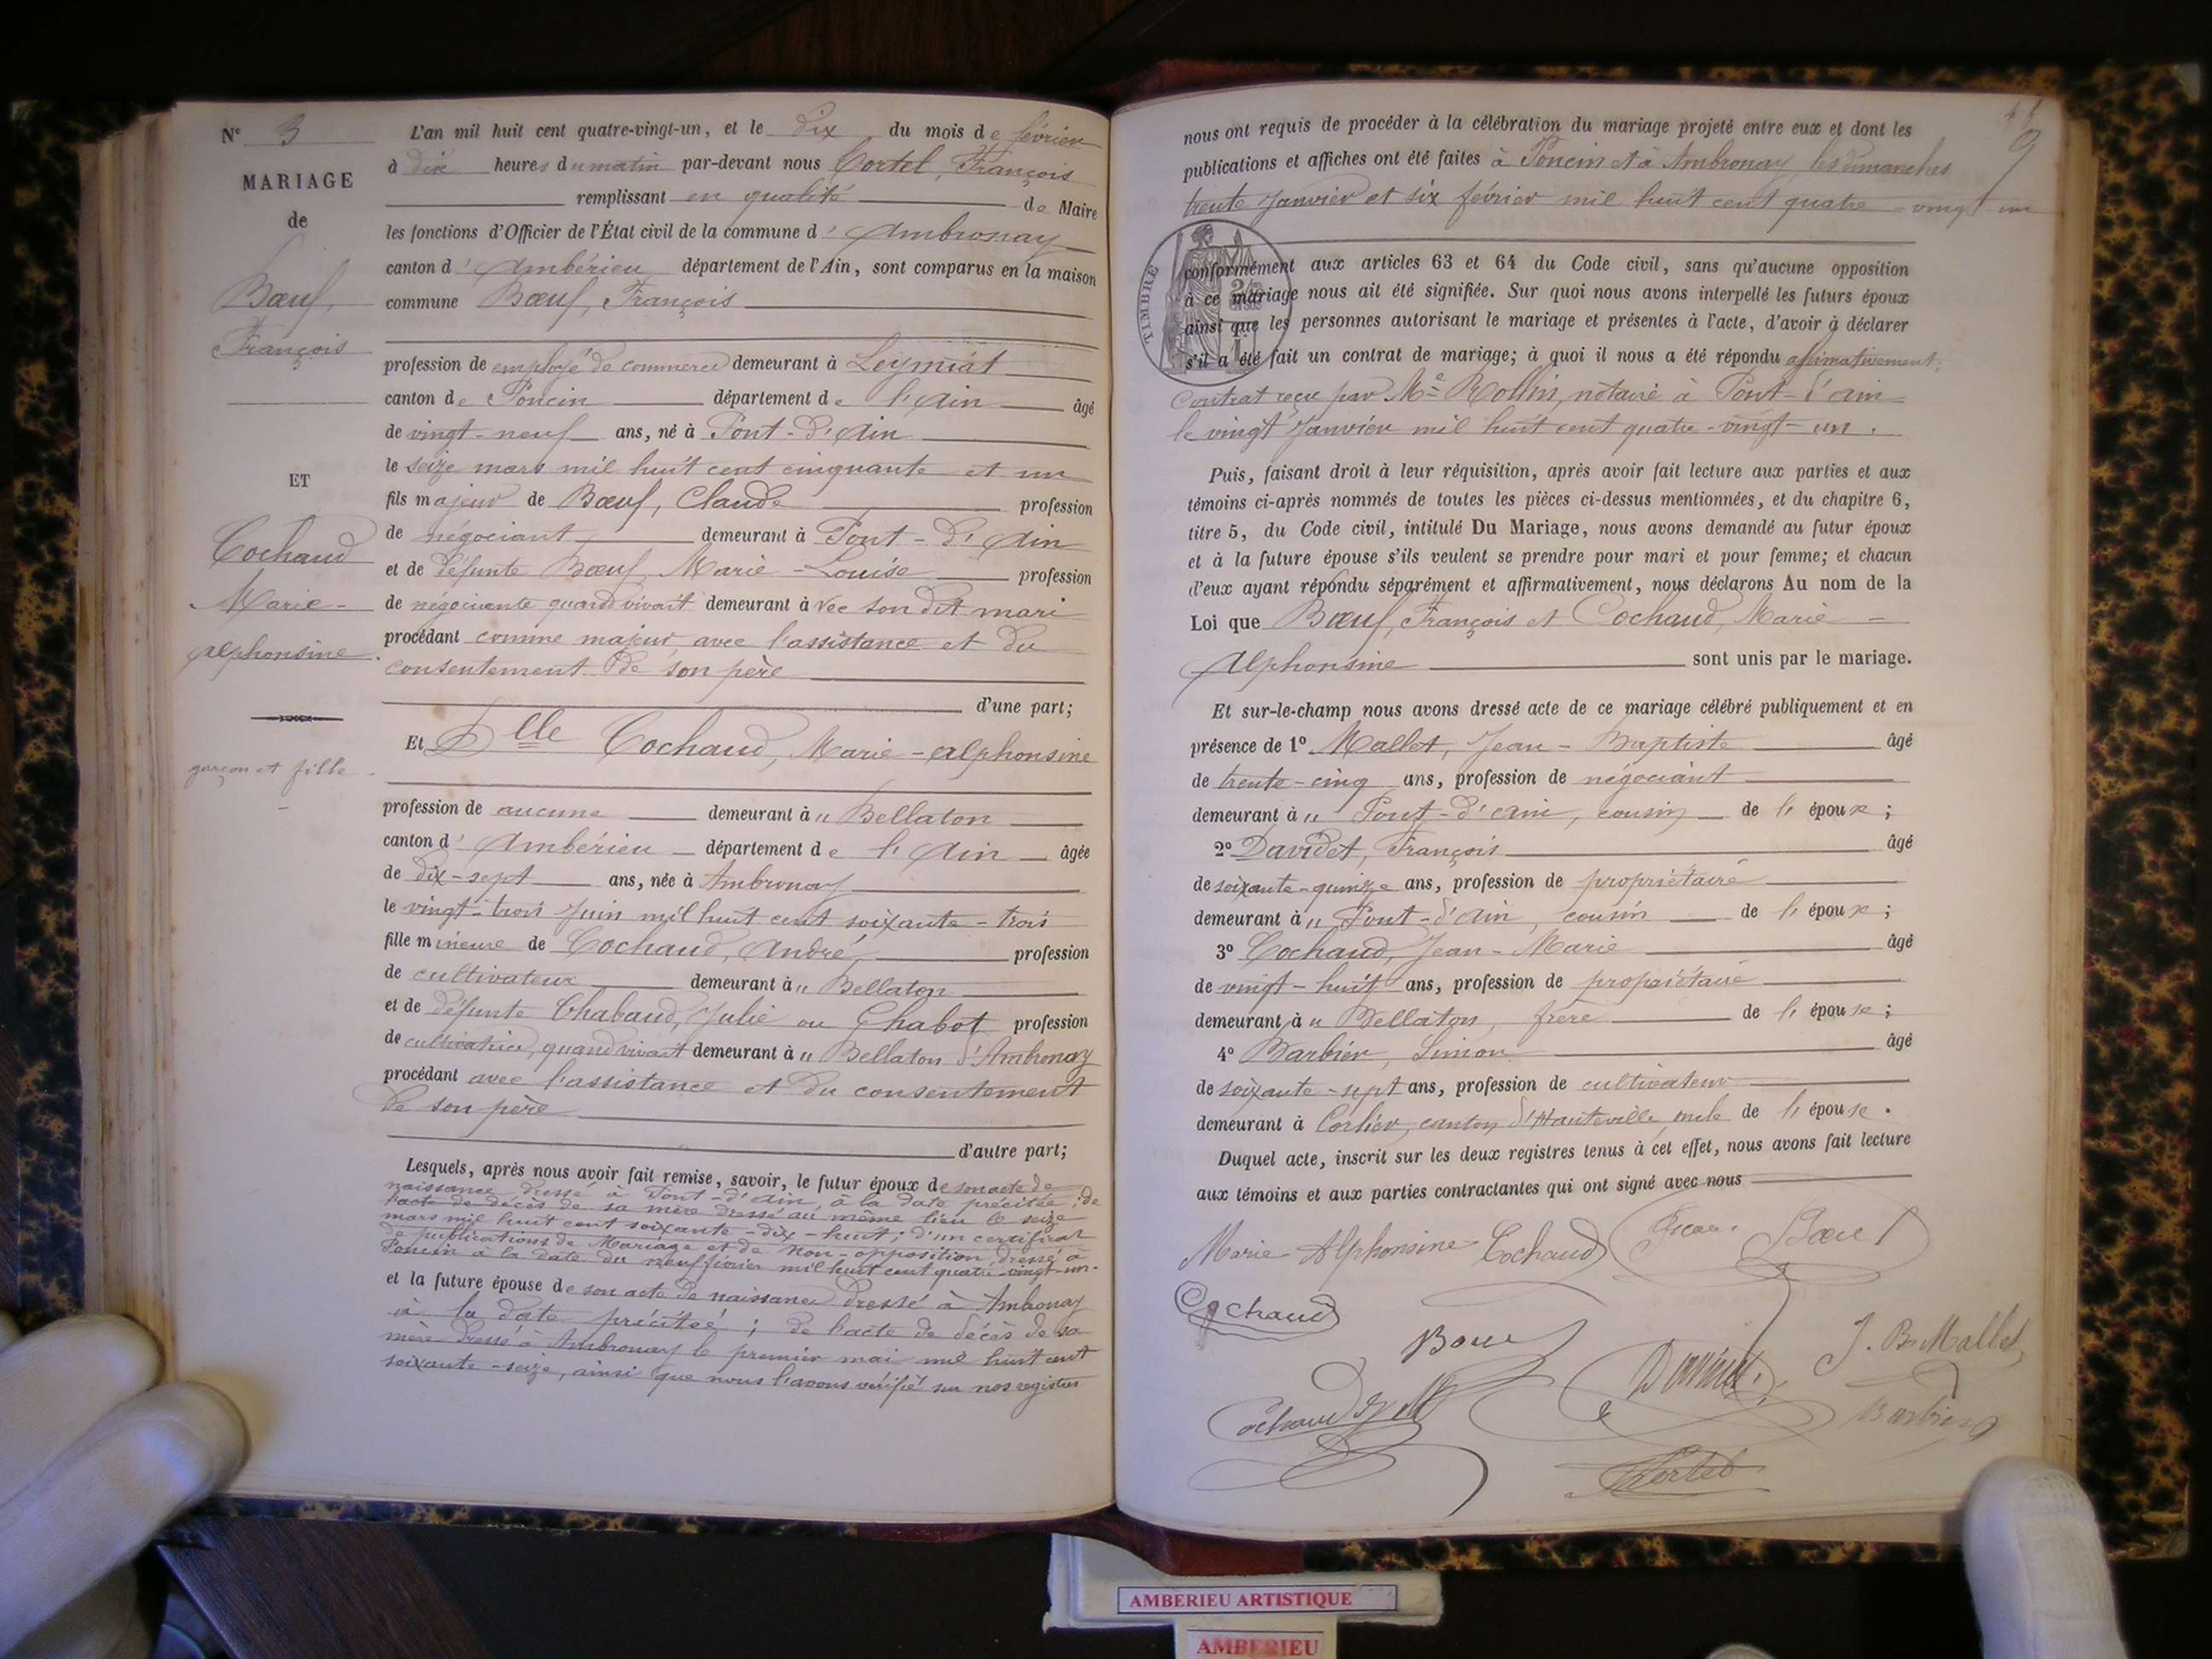 N° 3
MARIAGE
de
Bœuf,
François
ET
Cochaud
Marie-
Alphonsine.
garçon et fille
L'an mil huit cent quatre-vingt-un, et le dix du mois de février
à dix heures du matin par-devant nous Cortel, François
remplissant en qualité de Maire
les fonctions d'Officier de l'État civil de la commune d'Ambronay
canton d'Ambérieu département de l'Ain, sont comparus en la maison
commune Bœuf, François
profession de employé de commerce demeurant à Leymiat
canton de Poncin département de l'Ain âgé
de vingt-neuf ans, né à Pont-d'Ain
le seize mars mil huit cent cinquante et un
fils majeur de Bœuf, Claude profession
de négociant demeurant à Pont-d'Ain
et de défunte Bœuf, Marie-Louise profession
de négociante quand vivait demeurant à vec son dit mari
procédant comme majeur avec l'assistance et du
consentement de son père
d'une part;
Et Dlle Cochaud, Marie-Alphonsine
profession de aucune demeurant à " Bellaton
canton d'Ambérieu département de l'Ain âgée
de dix-sept ans, née à Ambronay
le vingt-trois Juin mil huit cent soixante-trois
fille mineure de Cochaud, André, profession
de cultivateur demeurant à " Bellaton
et de défunte Chabaud, Julie ou Chabot profession
de cultivatrice, quand vivait demeurant à " Bellaton d'Ambronay
procédant avec l'assistance et du consentement
de son père
d'autre part;
Lesquels, après nous avoir fait remise, savoir, le futur époux de son acte de
naissance dressé à Pont-d'Ain à la date précitée; de
l'acte de décès de sa mère dressé au même lieu le seize
mars mil huit cent soixante-dix-huit; d'un certificat
de publications de Mariage et de non-opposition dressé à
Poncin à la date du neuf février mil huit cent quatre-vingt-un.
et la future épouse de son acte de naissance dressé à Ambronay
à la date précitée; de l'acte de décès de sa
mère dressé à Ambronay le premier mai mil huit cent
soixante-seize, ainsi que nous l'avons vérifié sur nos registres
9
nous ont requis de procéder à la célébration du mariage projeté entre eux et dont les
publications et affiches ont été faites à Poncin et à Ambronay, les dimanches
trente Janvier et six février mil huit cent quatre-vingt un
TIMBRE
conformément aux articles 63 et 64 du Code civil, sans qu'aucune opposition
à ce mariage nous ait été signifiée. Sur quoi nous avons interpellé les futurs époux
ainsi que les personnes autorisant le mariage et présentes à l'acte, d'avoir à déclarer
s'il a été fait un contrat de mariage; à quoi il nous a été répondu affirmativement;
Contrat reçu par Me Rollin, notaire à Pont-d'ain
le vingt Janvier mil huit cent quatre-vingt-un.
Puis, faisant droit à leur réquisition, après avoir fait lecture aux parties et aux
témoins ci-après nommés de toutes les pièces ci-dessus mentionnées, et du chapitre 6,
titre 5, du Code civil, intitulé Du Mariage, nous avons demandé au futur époux
et à la future épouse s'ils veulent se prendre pour mari et pour femme; et chacun
d'eux ayant répondu séparément et affirmativement, nous déclarons Au nom de la
Loi que Bœuf, François et Cochaud, Marie-
Alphonsine sont unis par le mariage.
Et sur-le-champ nous avons dressé acte de ce mariage célébré publiquement et en
présence de 1° Mallet, Jean-Baptiste âgé
de trente-cinq ans, profession de négociant
demeurant à " Pont-d'ain, cousin de l'époux;
2° Davidet, François âgé
de soixante-quinze ans, profession de propriétaire
demeurant à " Pont-d'Ain, cousin de l'époux;
3° Cochaud, Jean-Marie âgé
de vingt-huit ans, profession de propriétaire
demeurant à " Bellaton, frère de l'épouse;
4° Barbier, Simon âgé
de soixante-sept ans, profession de cultivateur
demeurant à Corlier, canton d'Hauteville, oncle de l'épouse.
Duquel acte, inscrit sur les deux registres tenus à cet effet, nous avons fait lecture
aux témoins et aux parties contractantes qui ont signé avec nous
Marie Alphonsine Cochaud Bœuf
Cochaud
Bœuf
J. B. Mallet
Cochaud J M
Barbier
Cortel
AMBERIEU ARTISTIQUE
AMBERIEU